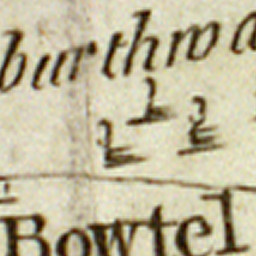 burthwa
Bowtel